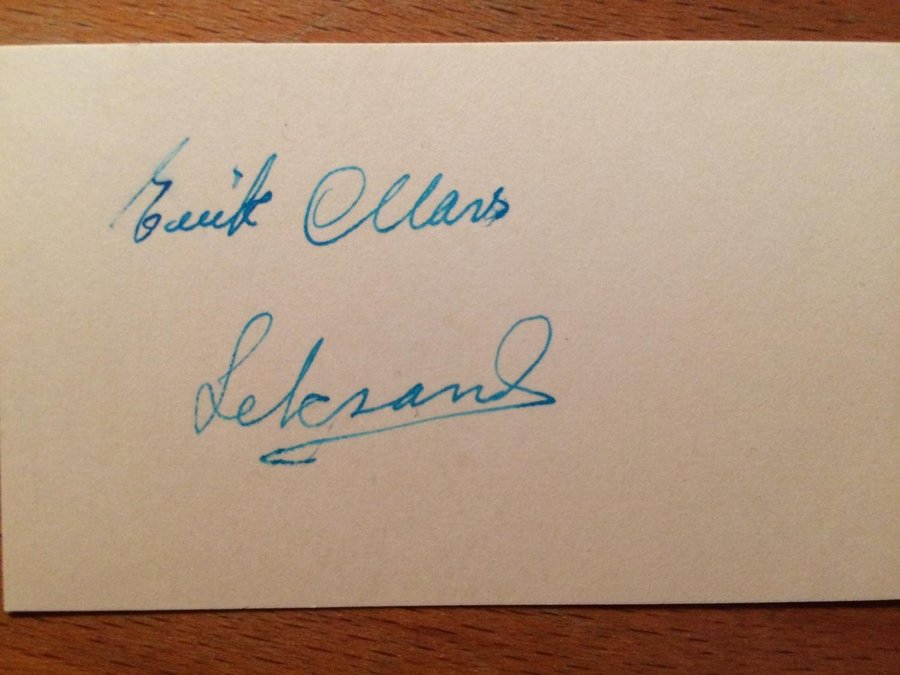 Erik Ollars
Leksand